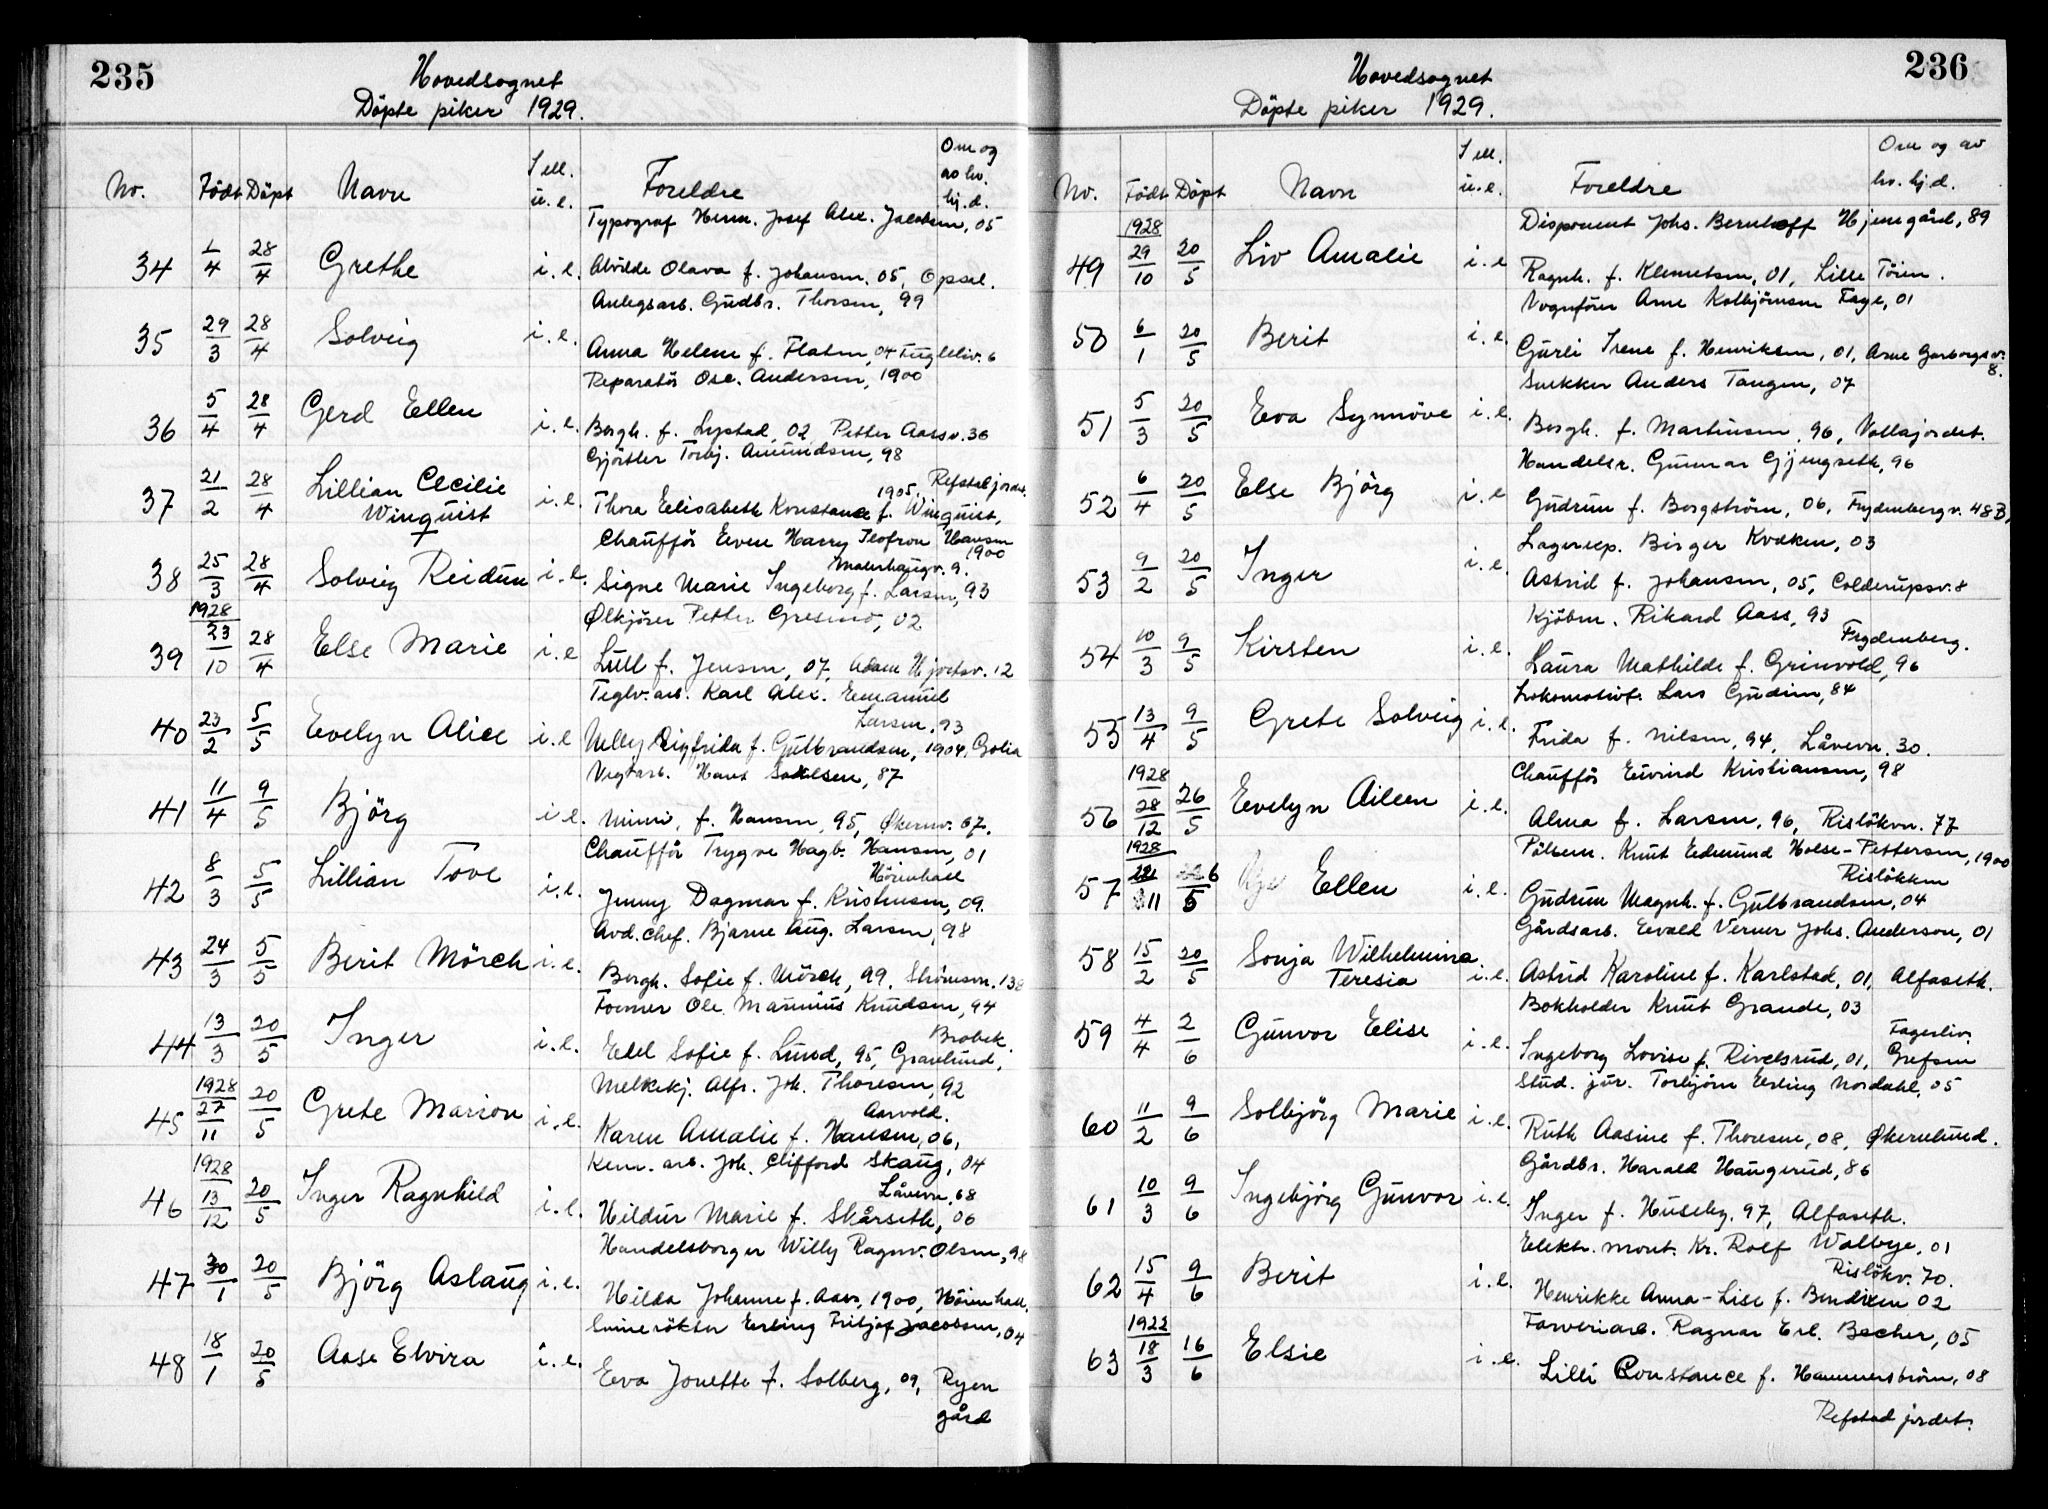 235
Hovedsognet
Döpte piker 1929.
No. Födt Döpt Navn I ell. u. e. Foreldre Om og av hv. hj. d.
Typograf Herm. Josef Alex. Jacobsen, 05
34 1/4 28/4 Grethe i. e. Alvilde Olava f. Johansen, 05, Opsal.
Anlegsarb. Gudbr. Thorsen, 99
35 29/3 28/4 Solveig i. e. Anna Helene f. Flaten, 04 Fugleliv. 6
Reparatör Osc. Andersen, 1900
36 5/4 28/4 Gerd Ellen i. e. Bergh. f. Lystad, 02, Petter Aassv. 36
Gjörtler Torbj. Amundsen, 98
37 21/2 28/4 Lillian Cecilie Winquist i. e. Thora Elisabeth Konstance f. Winquist, 1905. Refstadjordet.
Chaufför Even Harry Teofron Hansen 1900
38 25/3 28/4 Solveig Reidun i. e. Signe Marie Ingeborg f. Larsen, 93 Malerhaugv. 9.
Ølkjörer Petter Gresmo, 02
39 1928 23/10 28/4 Else Marie i. e Lull f. Jensen, 07, Adam Hjortsv. 12
Teglv. arb. Karl Alex. Emanuel Larsen, 93
40 23/2 5/5 Evelyn Alice i. e Nelly Sigfrida f. Gulbrandsen, 1904, Golia
Vegtarb. Hans 87
41 11/4 9/5 Björg i e. Mimi, f. Hansen, 95, Økernv. 67.
Chaufför Trygve Hagb. Hansen, 01
42 8/3 5/5 Lillian Tove i. e. Jenny Dagmar f. Kristensen, 09. Hörenhall
Avd. chef. Bjarne Aug. Larsen, 98
43 24/3 5/5 Berit Mörch i. e. Bergh. Sofie f. Mörch, 99, Strömsv. 138
Former Ole Marinius Knudsen, 94
44 13/3 20/5 Inger i. e. Edel Sofie f. Lund, 95, Grønlund, Brobek.
Melkekj. Alfr. Joh. Thoresen, 92
45 1928 27/11 20/5 Grete Marion i. e. Karen Amalie f. Hansen, 06, Aarvold.
Kem. arb. Joh. Clifford Skaug, 04
46 1928 13/12 20/5 Inger Ragnhild i. e. Hildur Marie f. Skårseth, 06 Låvevn. 68
Handelsborger Willy Ragnv. Olsen, 98
47 30/1 20/5 Björg Aslaug i. e. Hilda Johanne f. Aass, 1900, Hörenhall.
Svinerökter Erling Fritjof Jacobsen, 04
48 18/1 20/5 Aase Elvira i. e. Eva Jonette f. Solberg, 09, Ryen gård
236
Hovedsognet
Döpte piker 1929.
No. Födt Döpt Navn I ell. u. e. Foreldre Om og av hv. hj. d.
Disponent Johs. Bernhoff Hjemgård, 89
49 1928 29/10 20/5 Liv Amalie i. e Ragnh. f. Klemetsen, 01, Lille Töien.
Vognfører Arne Kolbjörnsen Fage, 01
50 6/1 20/5 Berit i. e. Gurli Irene f. Henriksen, 01, Arne Garborgsv. 8.
Snekker Anders Tangen, 07
51 5/3 20/5 Eva Synnöve i. e. Bergh. f. Martinsen, 96, Vollajordet.
Handelsr. Gunnar Gjengseth, 96
52 6/4 20/5 Else Björg i. e Gudrun f. Borgström, 06, Frydenbergv. 48B,
Lagereksp. Birger Kvaken, 03
53 9/2 20/5 Inger i. e. Astrid f. Johansen, 05, Colderupsv. 8
Kjöbm. Rikard Aass, 93
54 10/3 9/5 Kirsten i. e. Laura Mathilde f. Grinvold, 96 Frydenberg.
Lokomotivf. Lars Gudim, 84
55 13/4 9/5 Grete Solveig i. e. Frida f. Nilsen, 94, Låvevn. 30.
Chaufför Eivind Kristiansen, 98
56 1928 28/12 26/5 Evelyn Aileen i. e. Alma f. Larsen, 96, Rislökvn. 77
Pölsem. Knut Edmund Holse-Pettersen, 1900
57 1928 11 5 Ellen i. e. Gudrun Magnh. f. Gulbrandsen, 04 Rislökken
Gårdsarb. Evald Verner Johs. Anderson, 01
58 15/2 20/5 Sonja Wilhelmina Teresia i. e. Astrid Karoline f. Karlstad, 01, Alfaseth.
Bokholder Knut Grande, 03
59 4/4 2/6 Gunvor Elise i. e. Ingeborg Lovise f. Rivelsrud, 01, Fagerliv. Grefsen
Stud. jur. Torbjörn Erling Nordahl, 05
60 11/2 9/6 Solbjörg Marie i. e. Ruth Aasine f. Thoresen, 08, Økernlund.
Gårdbr. Harald Haugerud, 86
61 10/3 9/6 Ingebjörg Gunvor i. e. Inger f. Huseby, 97, Alfaseth.
Elektr. mont. Kr. Rolf Walbye, 01
62 15/4 9/6 Berit i. e. Henrikke Anna-Lise f. Bendixen 02 Rislökv. 70.
Farveriarb. Ragnar Erl. Becher, 05
63 1922 18/3 16/6 Elsie i. e. Lilli Constance f. Hammerström, 08
Refstad jordet.